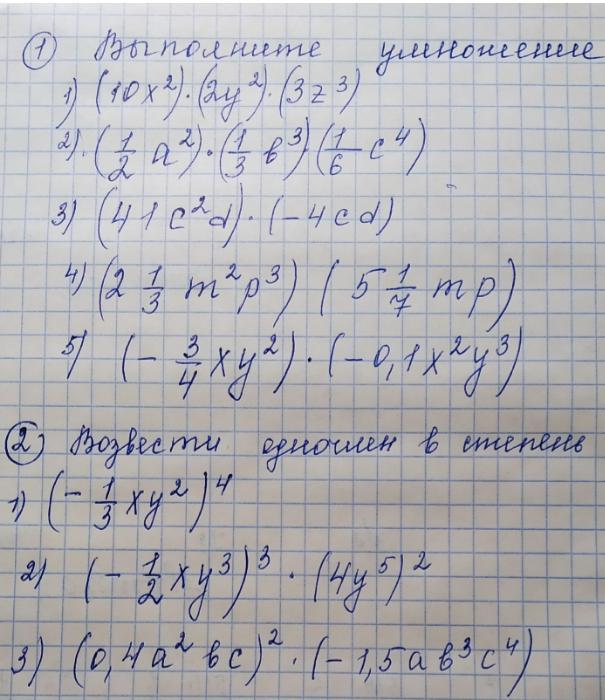 ① Выполните умножение
1) (10x²)·(2y²)·(3z³)
2)·(1/2 a²)·(1/3 b³)·(1/6 c⁴)
3) (41c²d)·(-4cd)
4) (2 1/3 m²p³) (5 1/7 mp)
5) (- 3/4 xy²)·(-0,1x²y³)
② Возвести одночлен в степень
1) (- 1/3 xy²)⁴
2) (- 1/2 xy³)³ · (4y⁵)²
3) (0,4a²bc)²·(-1,5ab³c⁴)